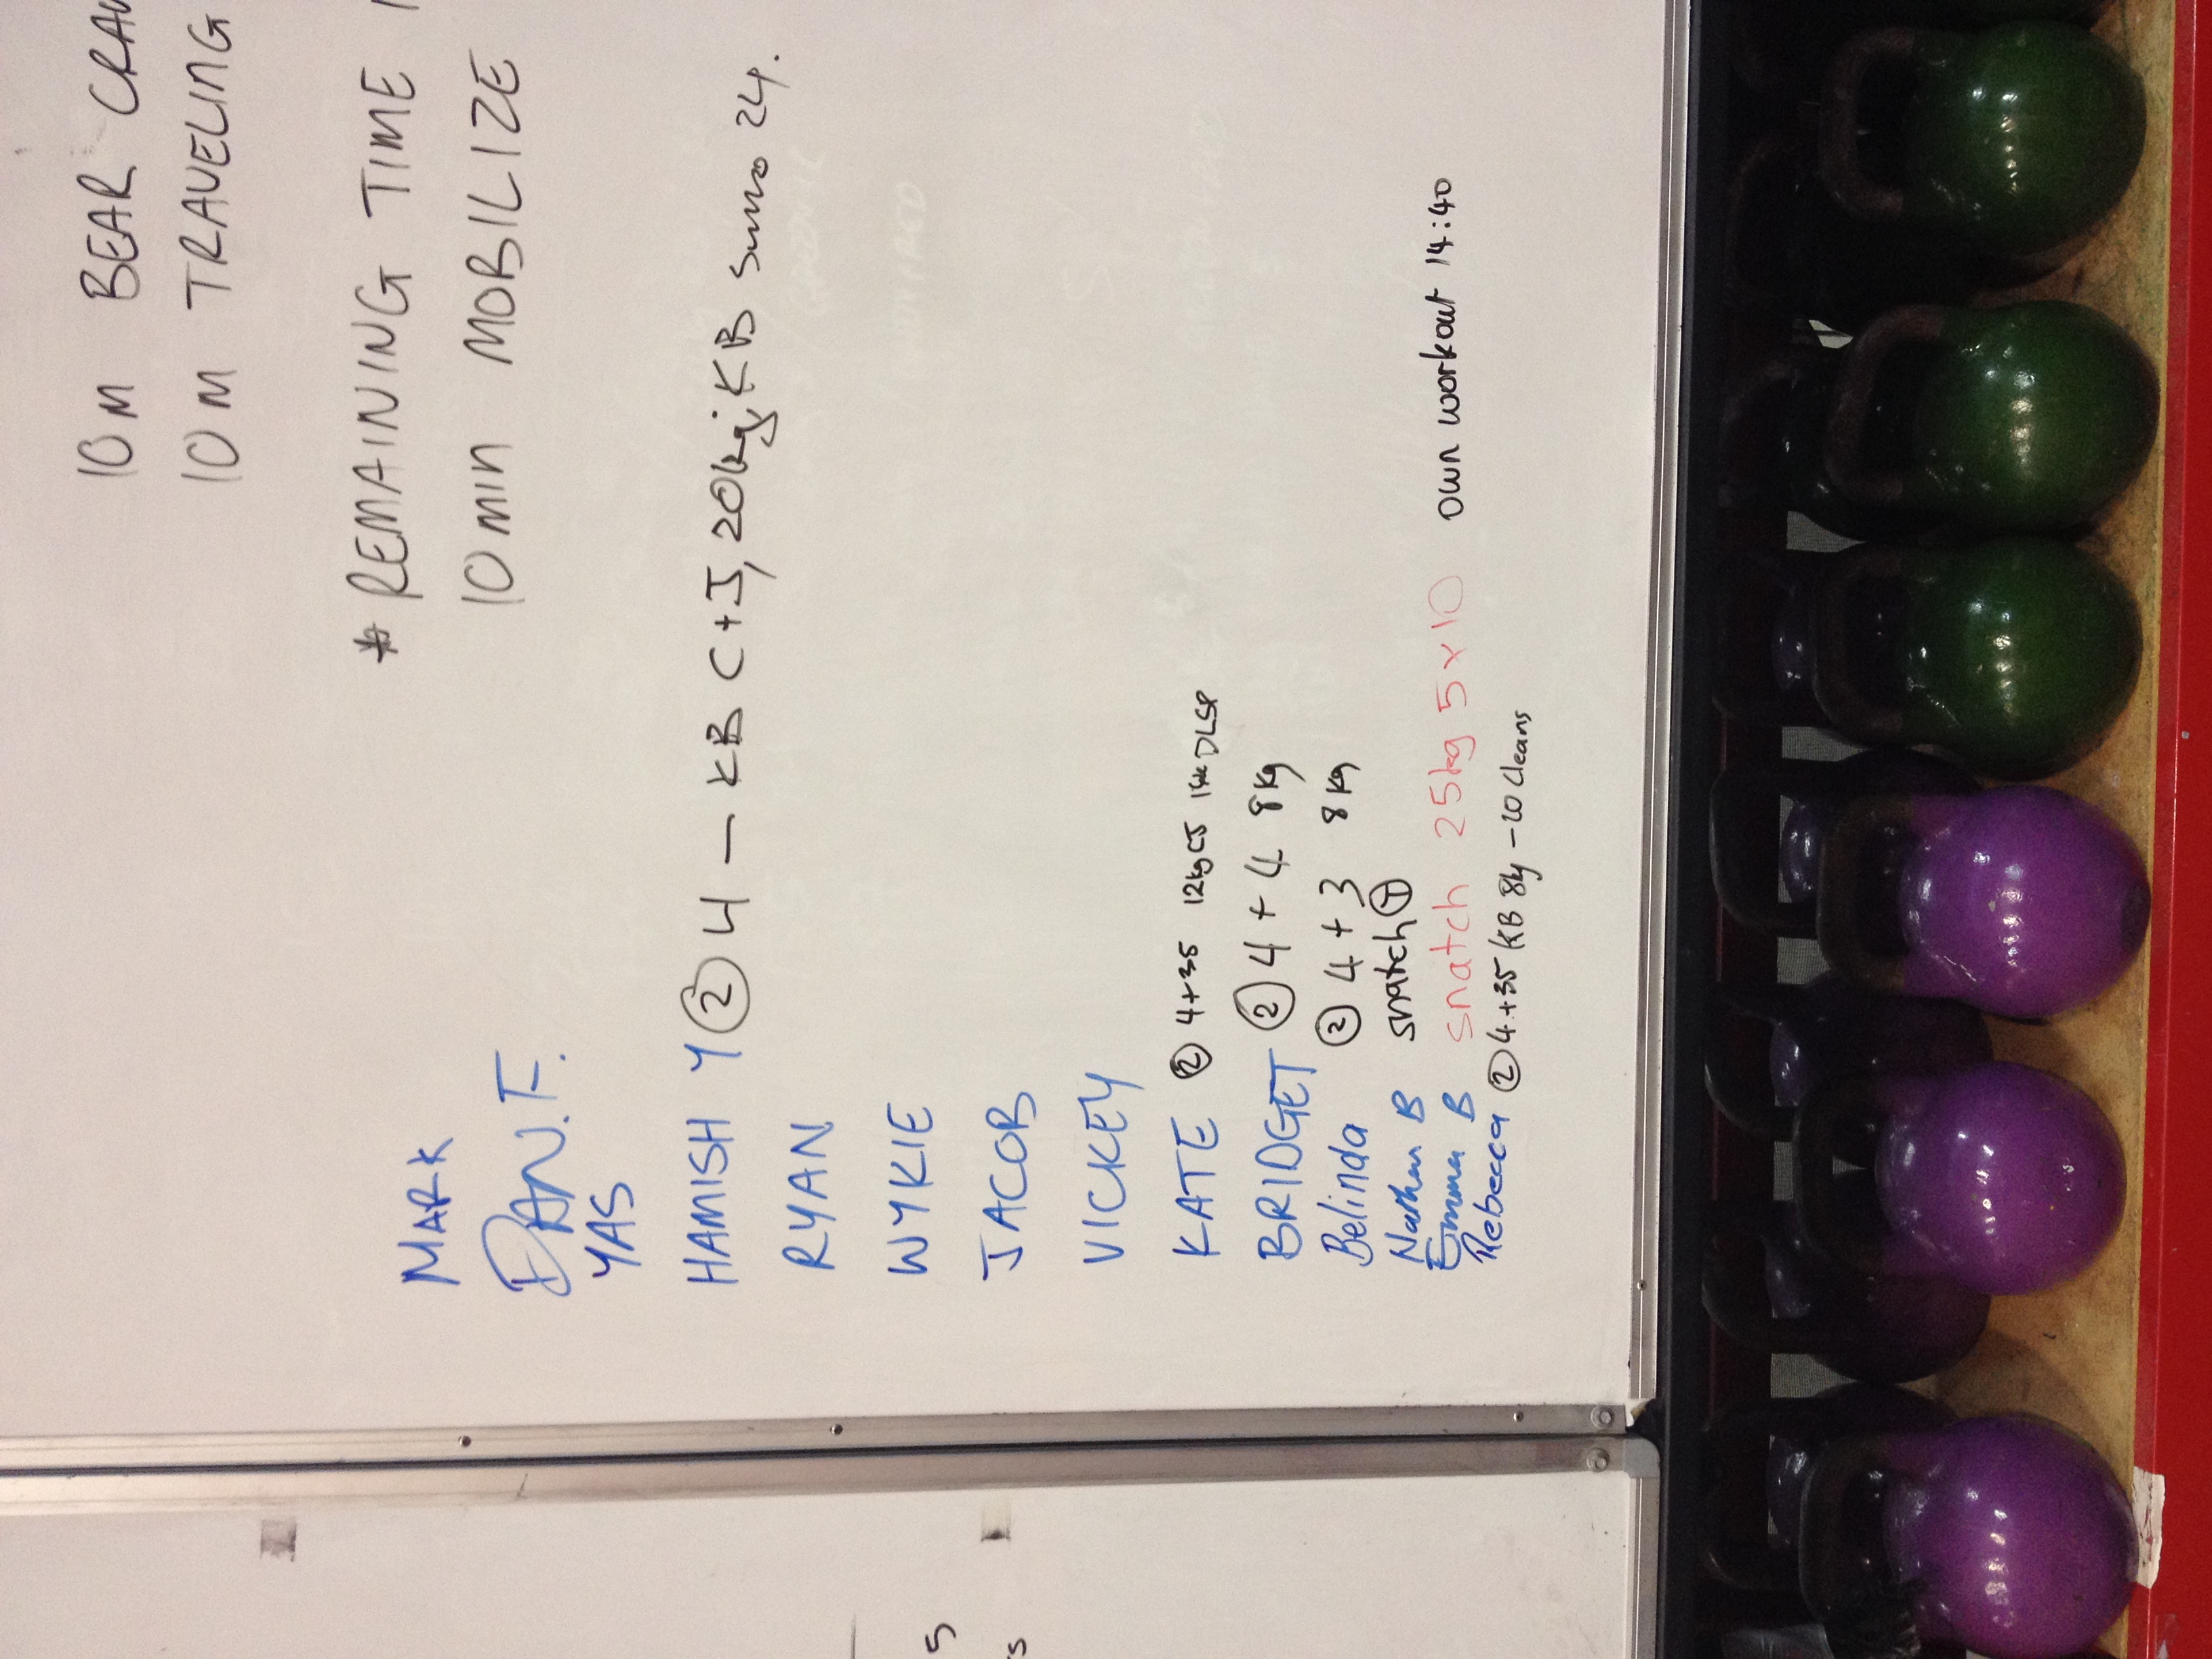 10M BEAR
10M TRAVELING
* REMAINING TIME
10 MIN MOBILIZE
MARK
DAN.F.
YAS
HAMISH Y ② 4 — KB C+J, 20kg; KB Sumo 24.
RYAN
WYKIE
JACOB
VICKEY
KATE ② 4+35 12kg CJ
BRIDGET ② 4 + 4 8kg
Belinda ② 4 + 3 8kg
Nathan B snatch
Emma B snatch 25kg 5x10 own workout 14:40
Rebecca ② 4+35 KB 8kg - 20 Cleans
5